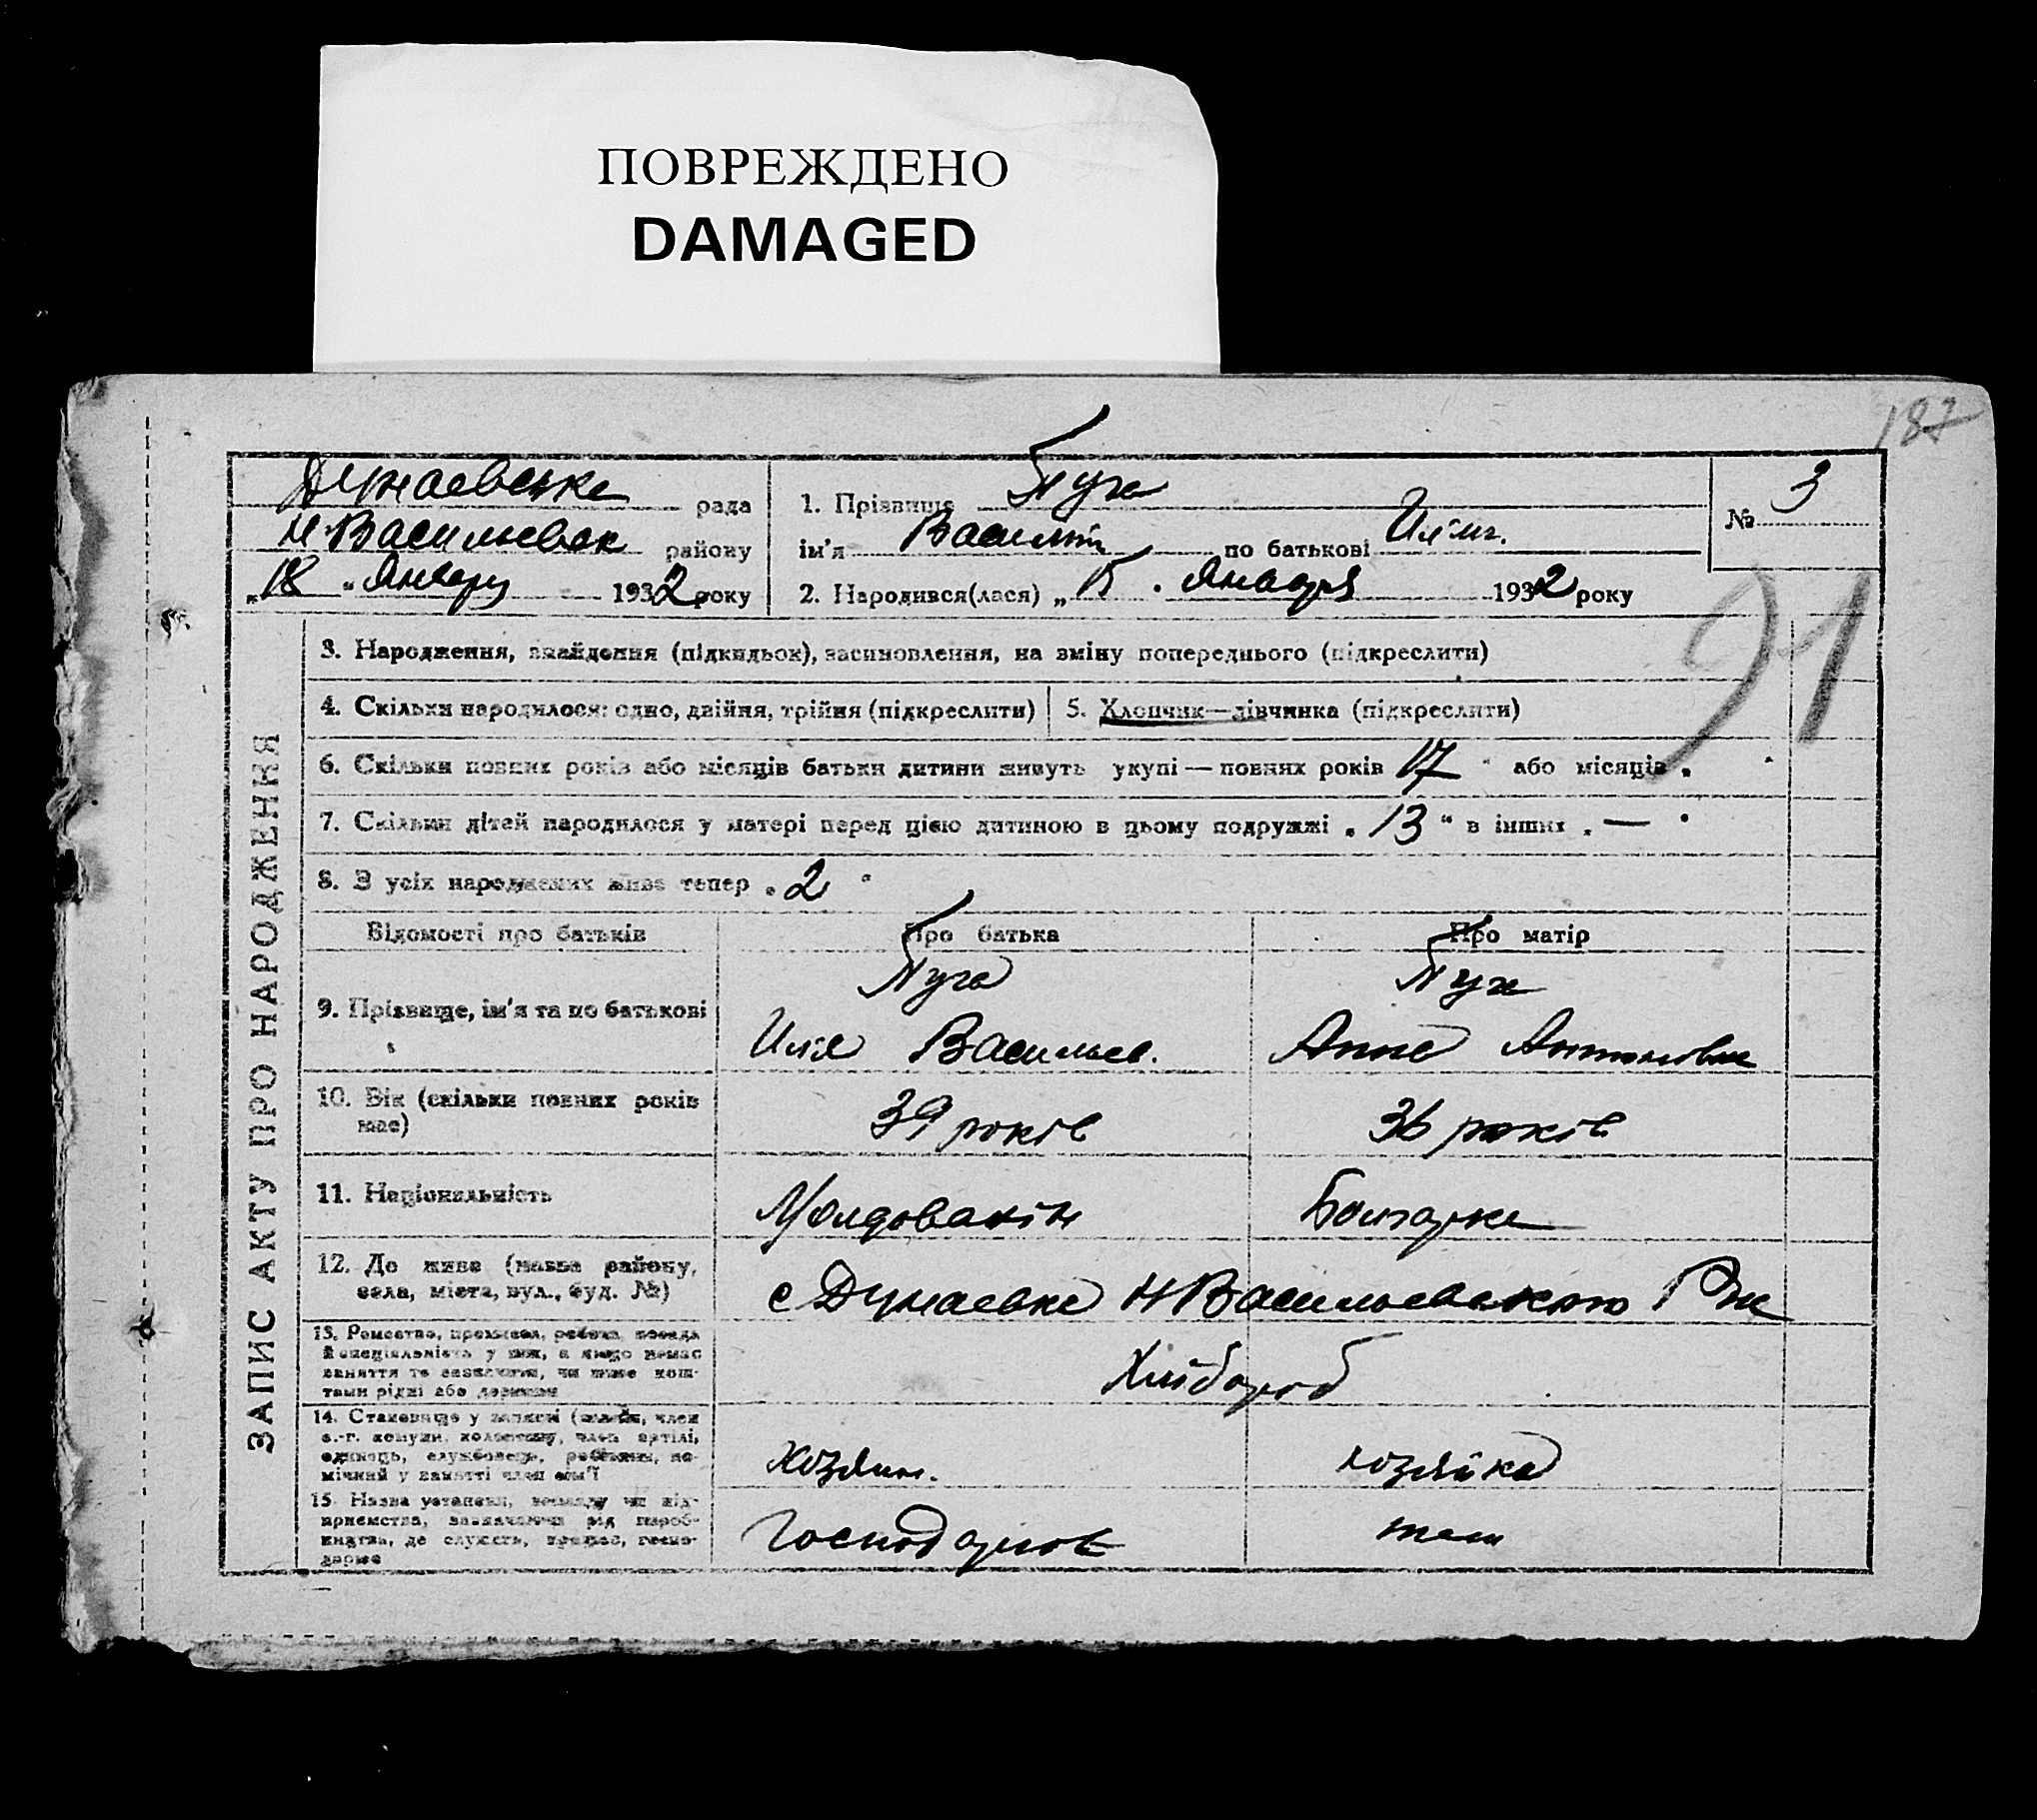 ПОВРЕЖДЕНО
DAMAGED
187
Дунаевська рада
Н-Васильевск району
„18“ Январу 1932 року
1. Прізвище Пуга
ім'я Василій по батькові Ильич.
2. Народився(лася) „15“ Января 1932 року
№ 3
91
ЗАПИС АКТУ ПРО НАРОДЖЕННЯ
3. Народження, знайдення (підкидьок), засиновлення, на зміну попереднього (підкреслити)
4. Скільки народилося: одно, двійня, трійня (підкреслити)
5. Хлопчик—дівчинка (підкреслити)
6. Скільки повних років або місяців батьки дитини живуть укупі — повних років 17 “ або місяців „ “
7. Скільки дітей народилося у матері перед цією дитиною в цьому подружжі „13“ в інших „—“
8. З усіх народжених живе тепер „2“
Відомості про батьків Про батька Про матір
9. Прізвище, ім'я та по батькові
Пуга
Илья Васильев.
Пуга
Анна Антоновна
10. Вік (скільки повних років має)
39 років
36 років
11. Національність
Молдованін
Болгарка
12. Де живе (назва району,
села, міста, вул., буд. №)
с Дунаевка Н Васильевського Р-на
13. Ремество, промисел, робота, посада
й спеціяльність у них, а якщо немає
заняття то зазначити, чи живе кош-
тами рідні або держави
Хлібороб
14. Становище у занятті (хазяїн, член
с.-г. комуни, колгоспу, член артілі,
одинець, службовець, робітник, по-
мічний у занятті член сім'ї
хозяин.
хозяйка
15. Назва установи, закладу чи під-
приємства, зазначаючи рід вироб-
ництва, де служить, працює, госпо-
дарює
Господарство
таки